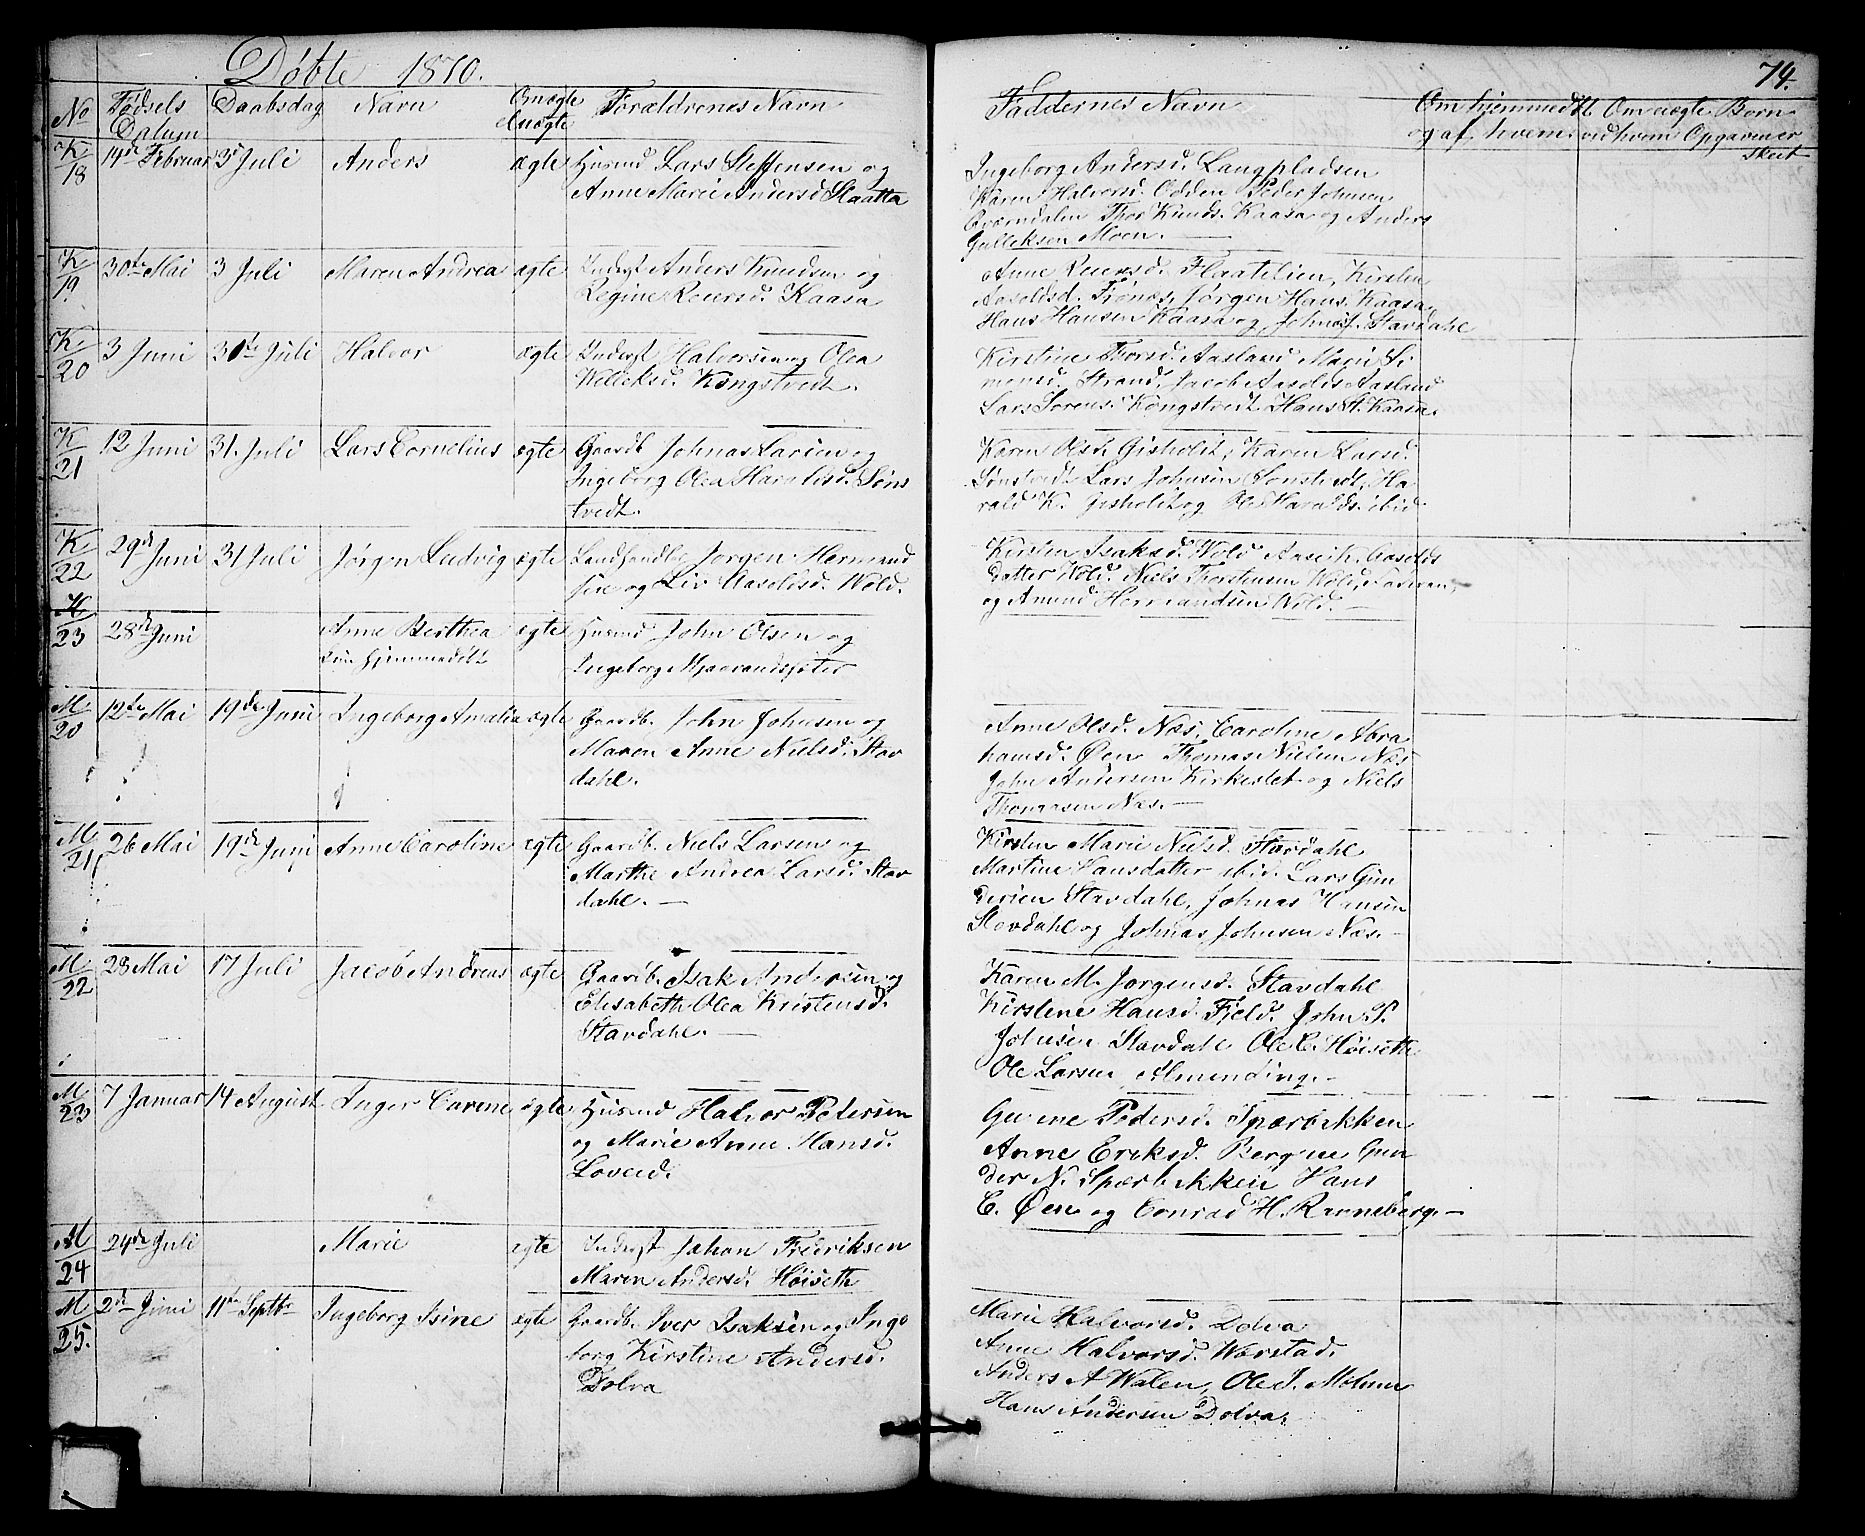 Døbte 1870.
74.
No Fødsels Datum Daabsdag Navn Om ægte el. uægte Forældrenes Navn
Faddernes Navn Om hjemmedøbt og af hvem Om uægte Børn ved hvem Opgaven er skeet
K/18 14de Februar 3die Juli Anders ægte Husmd Lars Steffensen og
Anne Marie Andersd. Slaatta
Ingeborg Andersd. Langpladsen
Karen Halvorsd. Odden Peder Johnsen
Thor Knuds. Kaasa og Anders
Gulleksen Moen.
K/19 30te Mai 3 Juli Maren Andrea ægte Inderst Anders Knudsen og
Regine Reiersd. Kaasa
Anne Reiersd. Flaatelien, Kirsten
Aasoldsd. Jørgen Hans. Kaasa
Hans Hansen Kaasa og Stavdahl
K/20 3 Juni 31te Juli Halvor ægte Inderst Halvorsen og Olea
Kongstvedt.
Kirstine Thorsd. Aasland Mari Si
monsd. Strand, Jacob Aasolds. Aasland
Lars Sorens. Kongstvedt Hans H. Kaasa.
K/21 12 Juni 31. Juli Lars Cornelius ægte Gaardb. Johnas Larsen og
Ingeborg Olea Haraldsd. Søns
tvedt.
Karen Olsd. Gisholdt, Karen Larsd.
Sønstvedt. Lars Johnsen Sonstvedt, Ha
rald K. Gisholdt og Ole Haralds. ibid
K/22 29de Juni 31 Juli Jørgen Ludvig ægte Landhandlr. Jorgen Hermand
sen og Liv Aasoldsd. Wold.
Kirsten Isaksd. Wold Aaseth. Aasolds
datter Wold. Niels Thorstensen Wold,
og Amund Hermandsen Wold.
K/23 28de Juni Anne Berthea ægte Husmd John Olsen og
hjemmedøbt Ingeborg
M/20 12te Mai 19de Juni Ingeborg Amalia ægte Gaardb. John Johnsen og
Maren Anne Nielsd. Stav
dahl.
Anne Olsd. Næs, Caroline Abra
hamsd. Øen Thomas Nielsen Næs
John Andersen Kirkeslet og Niels
Thomasen Næs.
M/21 26 Mai 19de Juni Anne Caroline ægte Gaardb. Niels Larsen og
Marthe Andrea Larsd. Stav
dahl.
Kirsten Marie Nielsd. Stavdahl
Martine Hansdatter ibid. Lars Gun
dersen Stavdahl, Johnas Hansen
Stavdahl og Johnas Johnsen Næs.
M/22 28 Mai 17 Juli Jacob Andreas ægte Gaardb. Isak Andersen og
Elisabeth Olea Kristensd.
Stavdahl.
Karen M. Jorgensd. Stavdahl
Kirstene Hansd. Fjeld. John P.
Johnsen Stavdahl Ole C. Høiseth
Ole Larsen Almending.
M/23 7 Januar 14 August Inger Carene ægte Husmd Halvor Petersen
og Marie Anne Hansd.
Loveid.
Pedersd. Spærbekken
Anne Eriksd. Bergene Gun
der N. Spærbekken Hans
C. Øen og Conrad H. Ranneberg.
M/24 24de Juli Marie ægte Inderst Johan Frederiksen
Maren Andersd. Høiseth
M/25. 2den Juni 11te Septbr Ingeborg Isine ægte Gaardb. Iver Isaksen og Inge
borg Kirstine Andersd.
Dolva
Marie Halvorsd. Dolva
Anne Halvorsd. Værstad.
Anders A Walen, Ole J. Molunn
Hans Andersen Dolva.